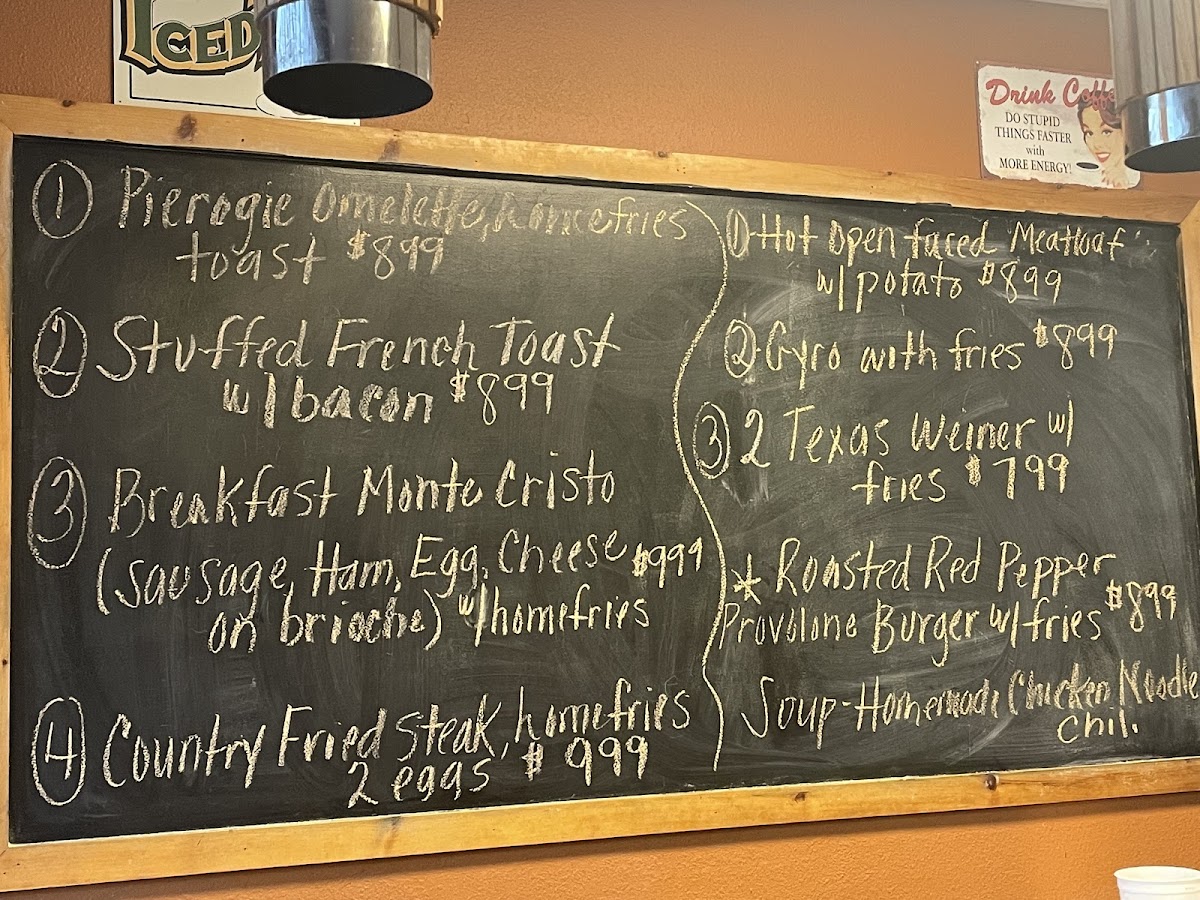 ICED
Drink Coffe
DO STUPID
THINGS FASTER
with
MORE ENERGY!
① Pierogie Omelette, homefries
toast $899
② Stuffed French Toast
w/ bacon $899
③ Breakfast Monte Cristo
(sausage, Ham, Egg, Cheese $999
on brioche) w/ homefries
④ Country Fried Steak, homefries
2 eggs $999
① Hot Open faced "Meatloaf"
w/ potato $899
② Gyro with fries $899
③ 2 Texas Weiner w/
fries $799
* Roasted Red Pepper
Provolone Burger w/ fries $899
Soup - Homemade Chicken Noodle
Chili